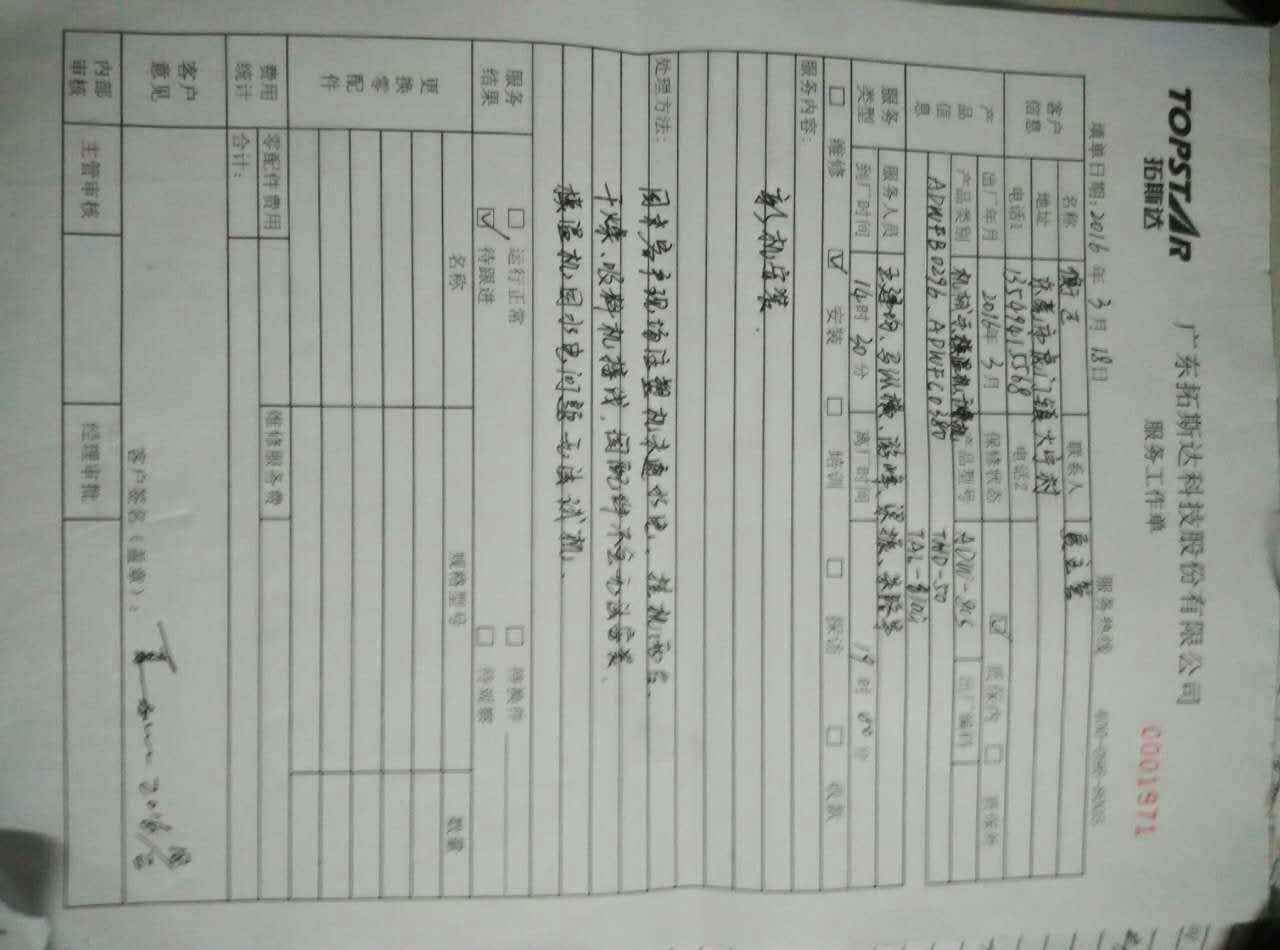 TOPSTAR
拓斯达
广东拓斯达科技股份有限公司
0001971
服务工作单
填单日期:2016年3月18日 服务热线 400-
客户信息 名称 联系人 主管
地址 东莞市虎门镇大宁村
电话1 13549415568 电话2
产品信息 出厂年月 2016年3月 保修状态 ☑ 质保内 □ 质保外
产品类别 机械手 模温机 产品型号 出厂编码
ADWFB0296、ADWFC0380 TMD-50
TAL-
服务类型 服务人员
到厂时间 14时30分 离厂时间 19时00分
□ 维修 ☑ 安装 □ 培训 □ 采访 □ 收款
服务内容:
新机安装.
处理方法:
因贵客户现场注塑机未通水电、
干燥、吸料机接线,因配件不全无法安装.
模温机因水电问题无法试机.
服务结果 □ 运行正常 □ 待换件
☑ 待跟进 □ 待观察
更换零配件 名称 规格型号 数量
费用统计 零配件费用 维修服务费
合计:
客户意见
客户签名(盖章):
内部审核 主管审核 经理审批